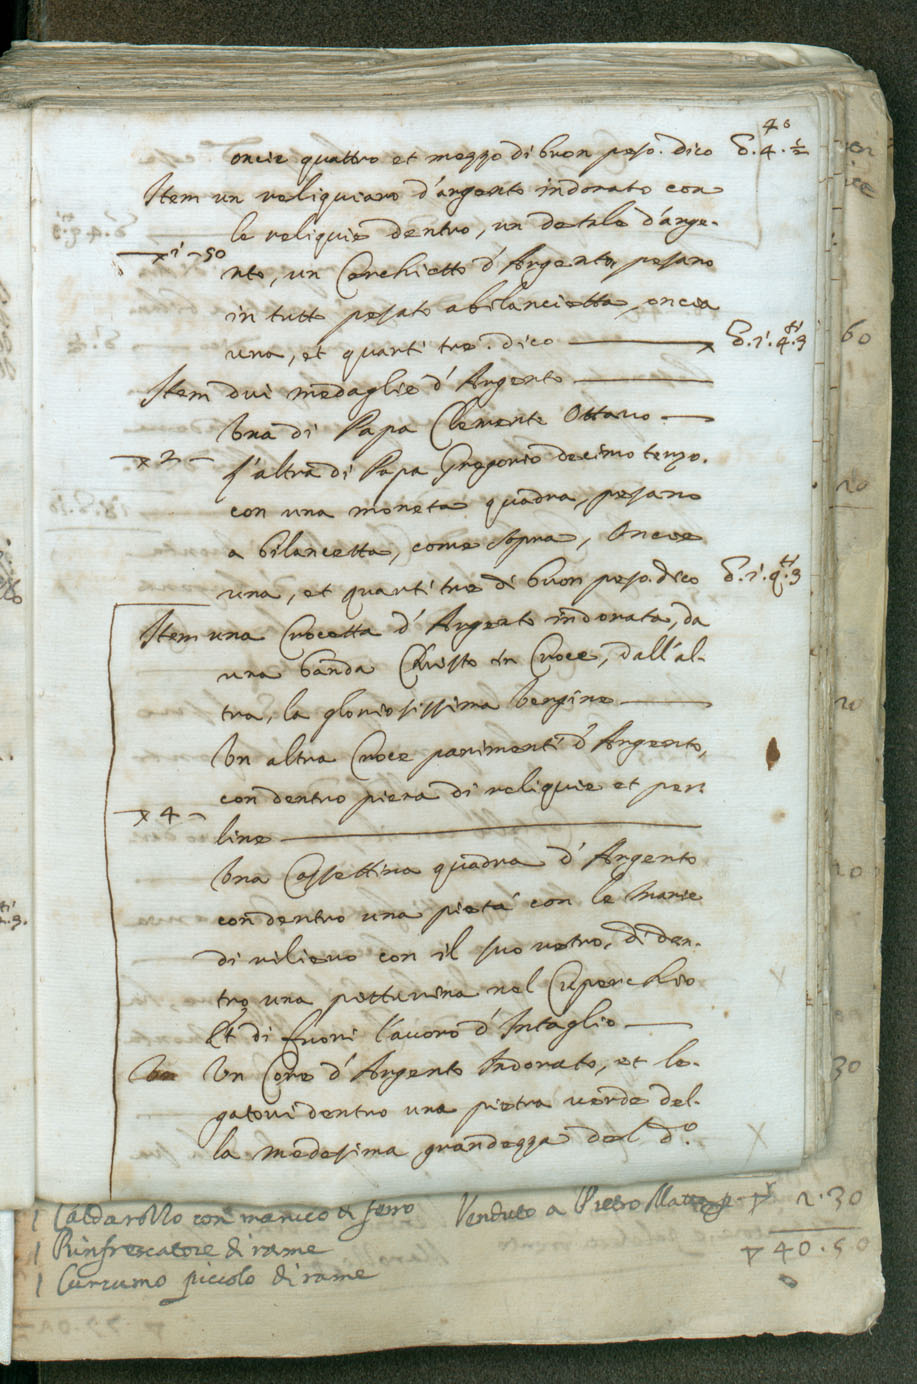 40
oncie quattro et mezzo di buon peso. dico δ. 4. ½
Item un reliquiaro d'argento indorato con
le reliquie dentro, un detale d'arge-
1 – 50
nto, un Cerchietto d'Argento, pesano
in tutto pesato a bilancietta, oncia
una, et quarti tre. dico δ. 1. q.ti 3
Item dui medaglie d'Argento
Una di Papa Clemente Ottavo
2 –
l'altra di Papa Gregorio decimo terzo.
con una moneta quadra, pesano
a bilancetta, come sopra, Oncie
una, et quarti tre di buon peso. dico δ. 1. q.ti 3
Item una Crocetta d'Argento indorata, da
una banda Christo in Croce, dall'al-
tra, la gloriosissima Vergine
Un altra Croce parimenti d'Argento,
con dentro piena di reliquie et per-
4 –
line
Una Cassettina quadra d'Argento
con dentro una pietà con le Marie
di rilievo con il suo vetro, di den-
tro una pitturina nel Cuperchio
Et di fuori lavoro d'Intaglio
Un Core d'Argento Indorato, et le-
gatovi dentro una pietra verde del-
la medesima grandezza del d.o
1 Caldarozzo con manico di ferro Venduto a Pietro 2.30
1 Rinfrescatore di rame 40.50
1 Cucumo piccolo di rame
60
20
20
20
30